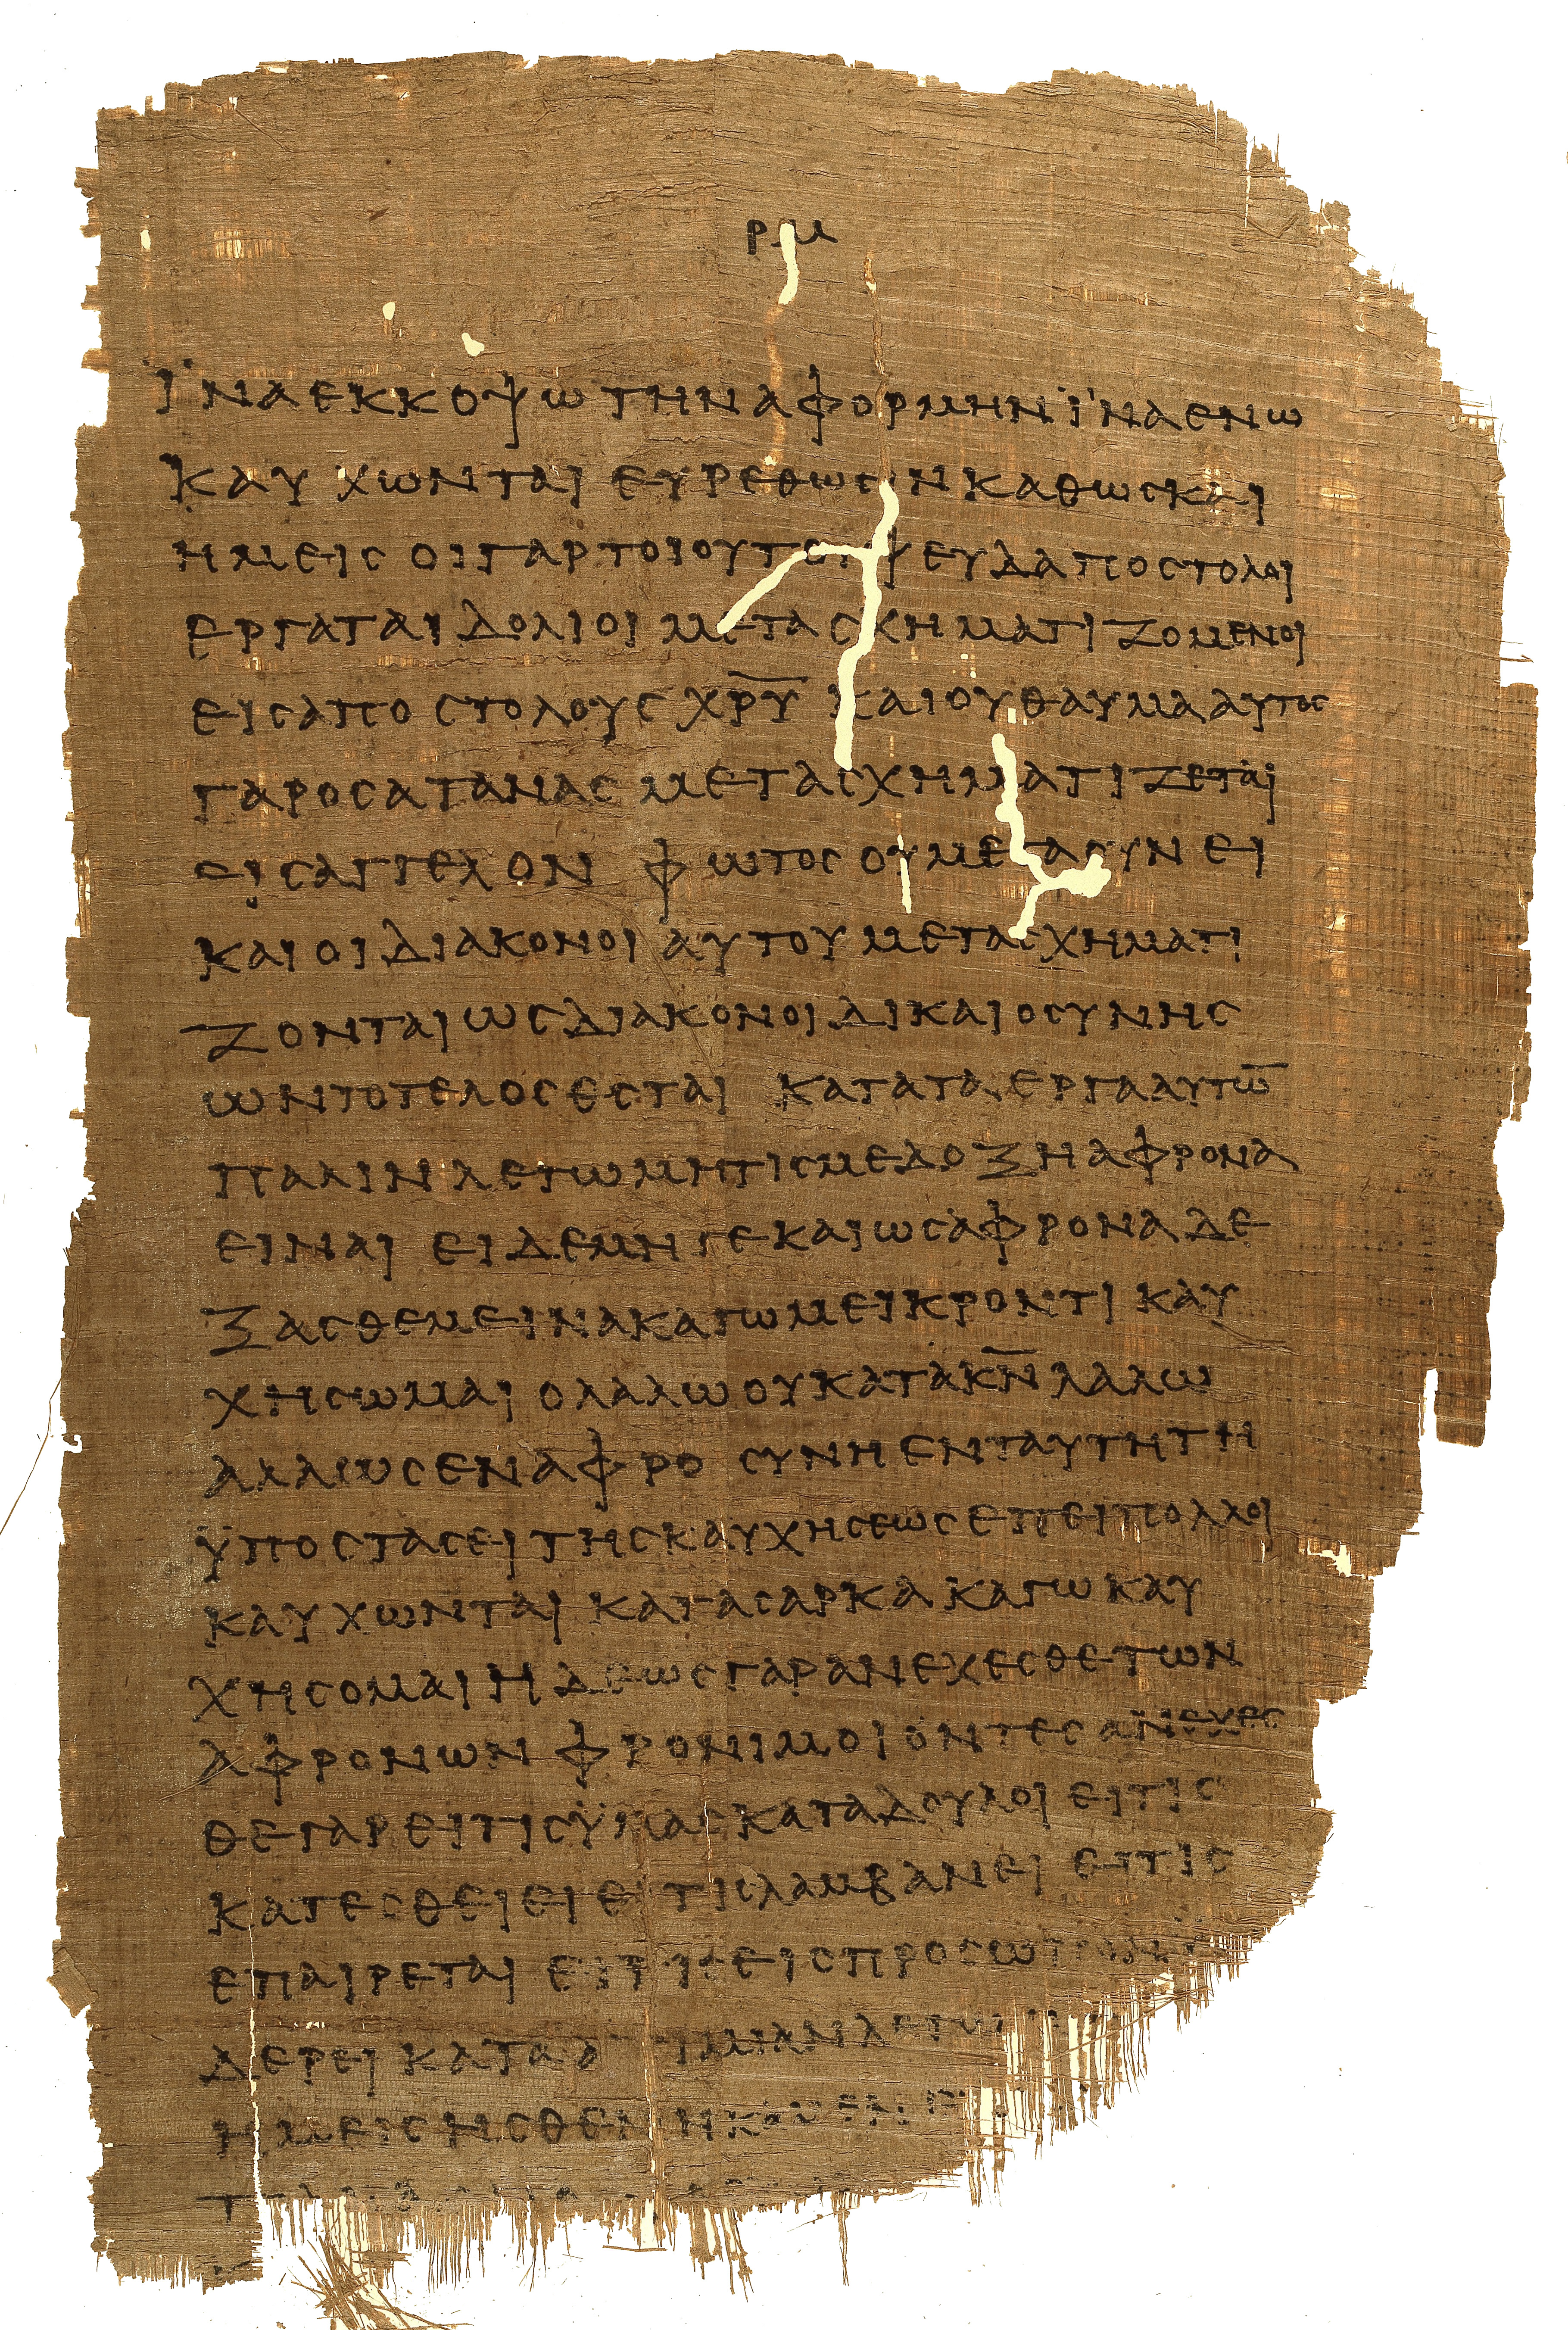 ρμ
ϊναεκκοψωτηναφορμηνϊναενω
καυχωνταιευρεθωσινκαθωσκαι
ημεισοιγαρτοιουτοιψευδαποστολοι
εργαταιδολιοιμετασχηματιζομενοι
εισαποστολουσχρ̅υ̅καιουθαυμααυτοσ
γαροσατανασμετασχηματιζεται
εισαγγελονφωτοσουμεγασυνει
καιοιδιακονοιαυτουμετασχηματι
ζονταιωσδιακονοιδικαιοσυνησ
ωντοτελοσεσταικαταταεργααυτω̅
παλινλεγωμητισμεδοξηαφρονα
ειναιειδεμηγεκαιωσαφροναδε
ξασθεμειινακαγωμεικροντικαυ
χησωμαιολαλωουκατακ̅ν̅λαλω
αλλωσεναφροσυνηενταυτητη
ϋποστασειτησκαυχησεωσεπειπολλοι
καυχωνταικατασαρκακαγωκαυ
χησομαιηδεωσγαρανεχεσθετων
αφρονωνφρονιμοιοντεσανεχεσ
θεγαρειτισϋμασκαταδουλοιειτισ
κατεσθειειειτισλαμβανειειτισ
επαιρεταιειτισεισπροσωπον
δερεικατα
ημεισησθεν